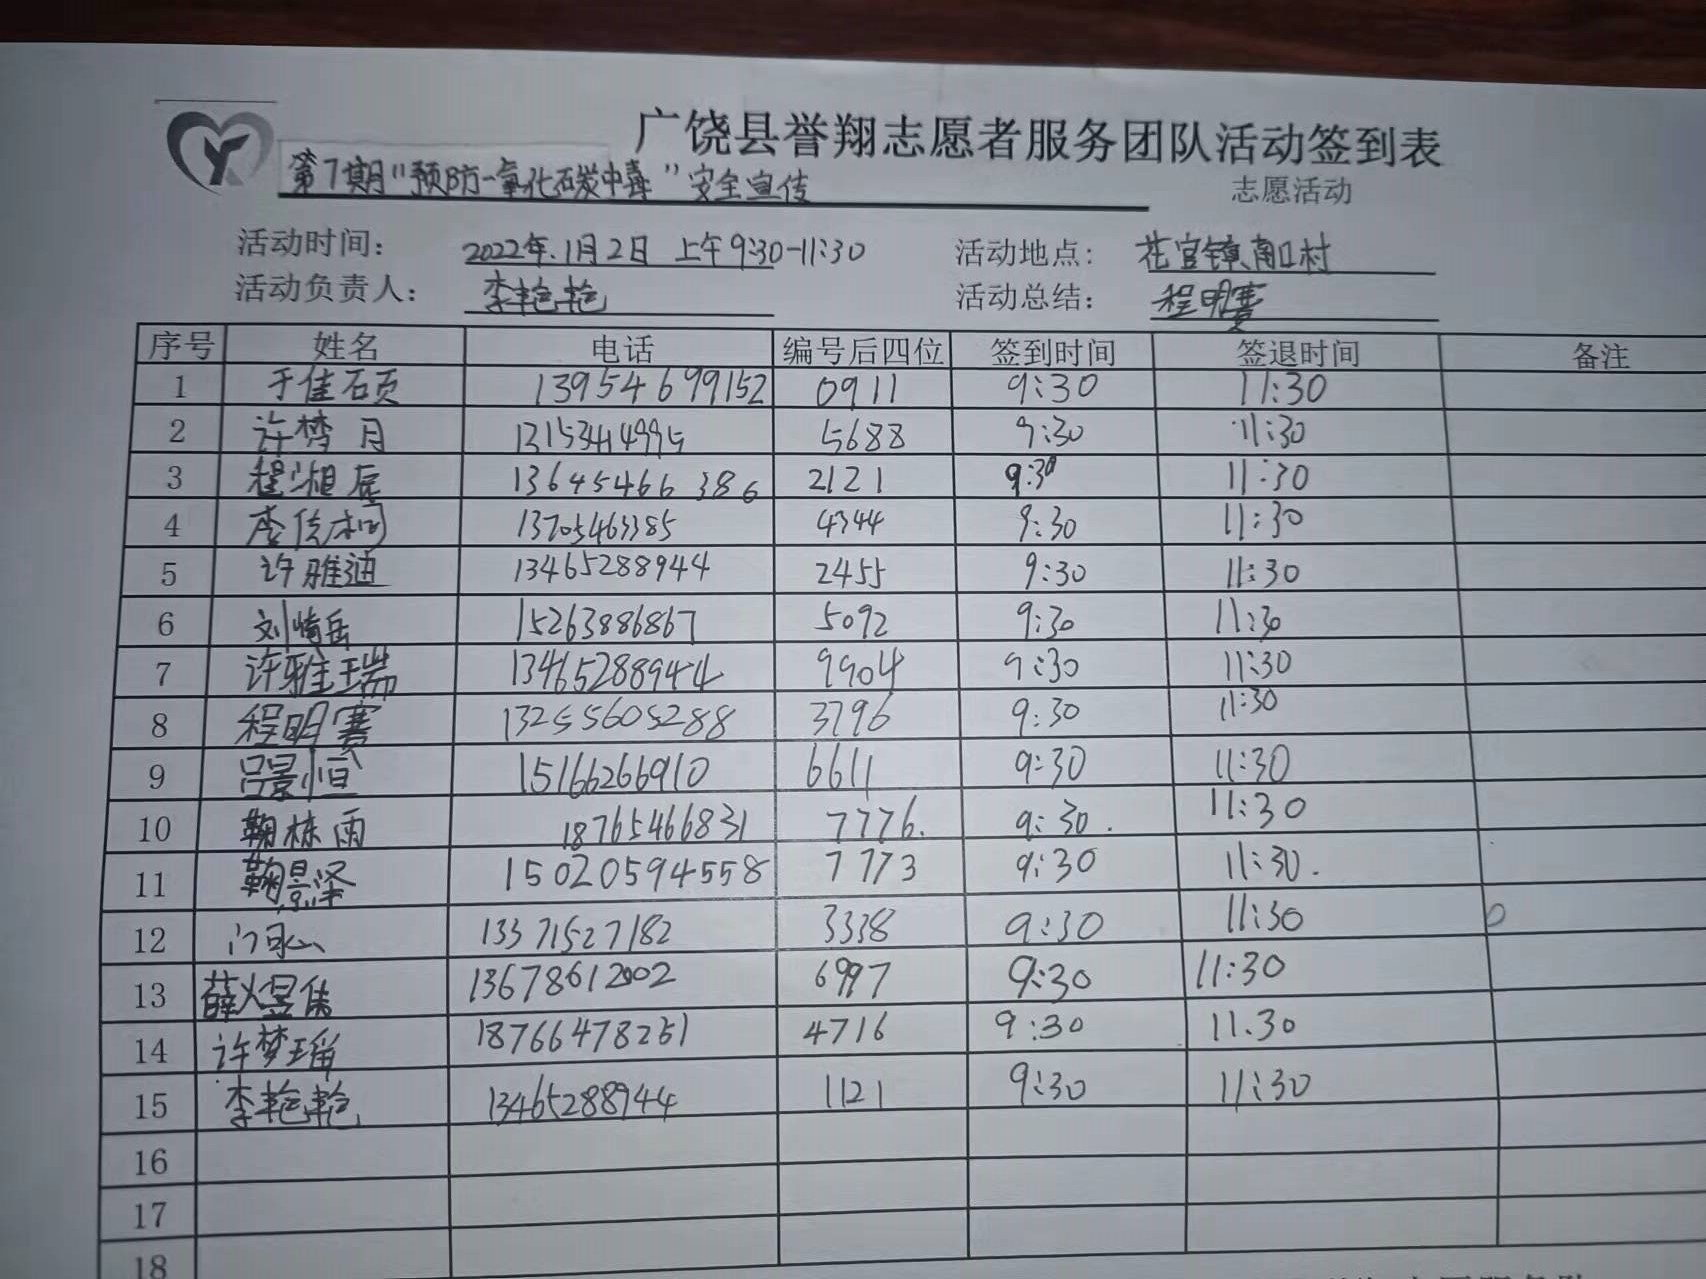 广饶县誉翔志愿者服务团队活动签到表
第7期"预防一氧化碳中毒"安全宣传 志愿活动
活动时间: 2022年.1月2日 上午9:30-11:30 活动地点: 花官镇南口村
活动负责人: 李艳艳 活动总结: 程明赛
序号 姓名 电话 编号后四位 签到时间 签退时间 备注
1 于佳硕 13954699152 0911 9:30 11:30
2 许梦月 5688 9:30 11:30
3 程湘辰 13645466386 2121 9:30 11:30
4 李佳桐 13705463385 4344 9:30 11:30
5 许雅迪 13465288944 2455 9:30 11:30
6 刘崎岳 15263886867 5092 9:30 11:30
7 许雅瑞 13465288944 9904 9:30 11:30
8 程明赛 13255605288 3796 9:30 11:30
9 吕景恒 15166266910 6611 9:30 11:30
10 鞠栋雨 18765466831 7776. 9:30. 11:30
11 鞠景泽 15020594558 7773 9:30 11:30.
12 13371527182 3338 9:30 11:30
13 薛煜伟 13678612002 6997 9:30 11:30
14 许梦瑶 18766478251 4716 9:30 11.30
15 李艳艳 13465288944 1121 9:30 11:30
16
17
18